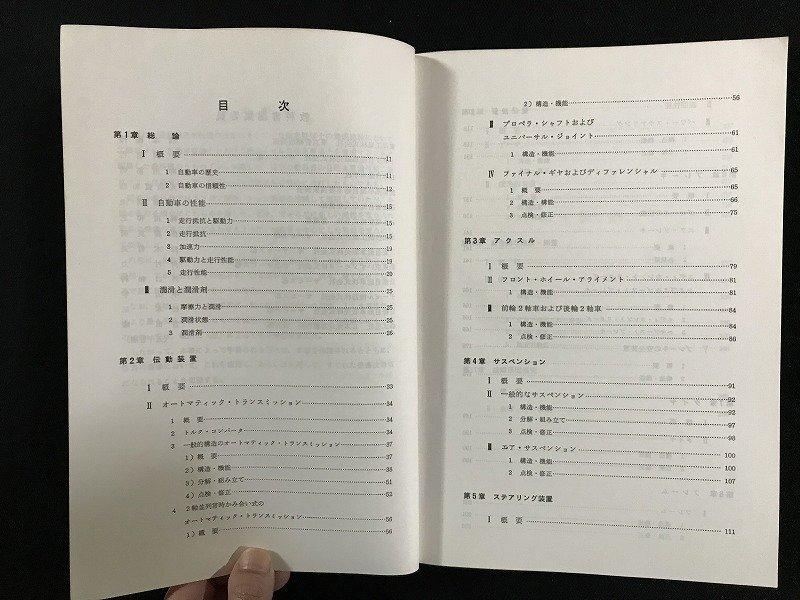 目次
第1章 総論
Ⅰ 概要 11
1 自動車の歴史 11
2 自動車の信頼性 12
Ⅱ 自動車の性能 15
1 走行抵抗と駆動力 15
2 走行抵抗 15
3 加速力 19
4 駆動力と走行性能 19
5 走行性能 20
Ⅲ 潤滑と潤滑剤 25
1 摩擦力と潤滑 25
2 潤滑状態 26
3 潤滑剤 26
第2章 伝動装置
Ⅰ 概要 33
Ⅱ オートマティック・トランスミッション 34
1 概要 34
2 トルク・コンバータ 34
3 一般的構造のオートマティック・トランスミッション 37
1) 概要 37
2) 構造・機能 38
3) 分解・組み立て 51
4) 点検・修正 52
4 2軸並列常時かみ合い式の
オートマティック・トランスミッション 56
1) 概要 56
2) 構造・機能 56
Ⅲ プロペラ・シャフトおよび
ユニバーサル・ジョイント 61
1 構造・機能 61
Ⅳ ファイナル・ギヤおよびディファレンシャル 65
1 概要 65
2 構造・機能 66
3 点検・修正 75
第3章 アクスル
Ⅰ 概要 79
Ⅱ フロント・ホイール・アライメント 81
1 構造・機能 81
Ⅲ 前輪2軸車および後輪2軸車 84
1 構造・機能 84
2 点検・修正 86
第4章 サスペンション
Ⅰ 概要 91
Ⅱ 一般的なサスペンション 92
1 構造・機能 92
2 分解・組み立て 97
3 点検・修正 98
Ⅲ エア・サスペンション 100
1 構造・機能 100
2 点検・修正 107
第5章 ステアリング装置
Ⅰ 概要 111